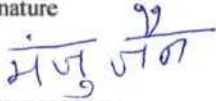 nature
मंजु जैन